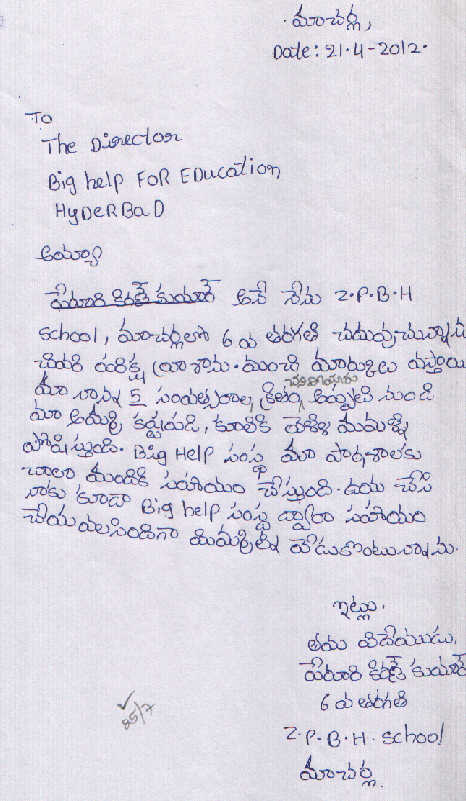 మాచర్ల,
Date: 21-4-2012.
To
The Director
Big help FOR EDucation
HyDeRBaD
అయ్యా
పేరూరి కిరణ్ కుమార్ అనే నేను Z.P.B.H
school, మాచర్లలో 6 వ తరగతి చదువుచున్నాను
చివరి పరిక్ష వ్రాశాను. మంచి మార్కులు వస్తాయి
చనిపోయారు
మా నాన్న 5 సంవత్సరాల క్రితం అప్పటి నుండి
మా అమ్మ కష్టపడి, కూలికి వెళ్ళి మమల్ని
పోషిస్తుంది. Big Help సంస్థ మా పాఠశాలకు
చాలా మందికి సహాయం చేస్తుంది. దయ చేసి
నాకు కూడా Big help సంస్థ ద్వారా సహాయం
చేయ వలసిందిగా మిమ్మల్ని వేడుకొంటున్నాను.
ఇట్లు,
తమ విదేయుడు,
పేరూరి కిరణ్ కుమార్
6 వ తరగతి
Z.P.B.H. school
మాచర్ల
85/7